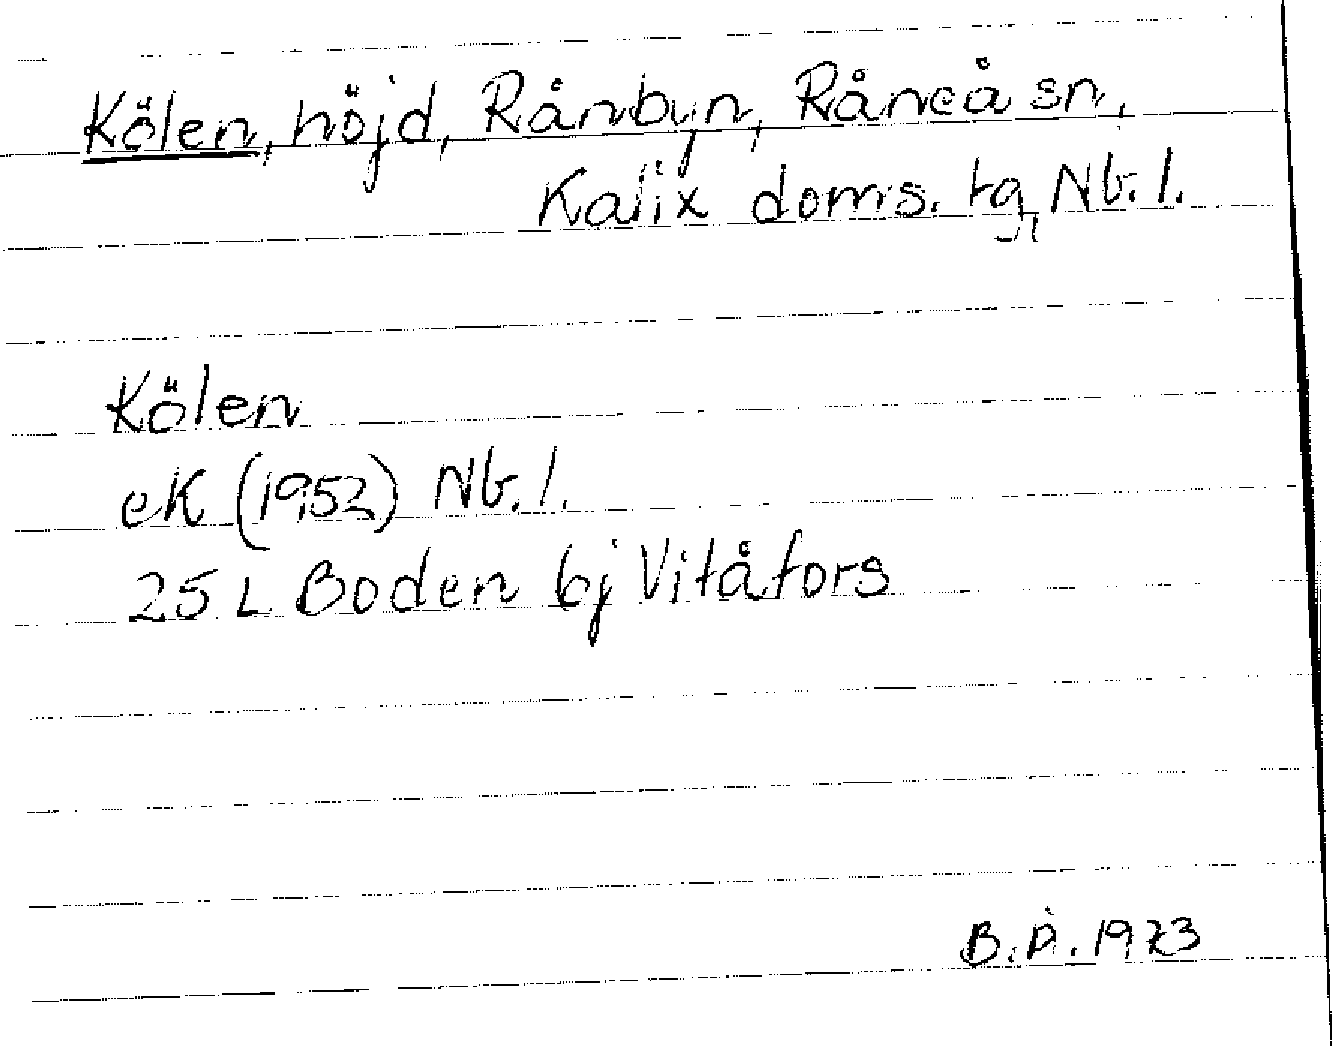 Kölen, höjd, Rånbyn, Råneå sn,
Kalix doms. tg, Nb. l.
Kölen
eK (1952) Nb. l.
25 L Boden bj Vitåfors
B. Å. 1973